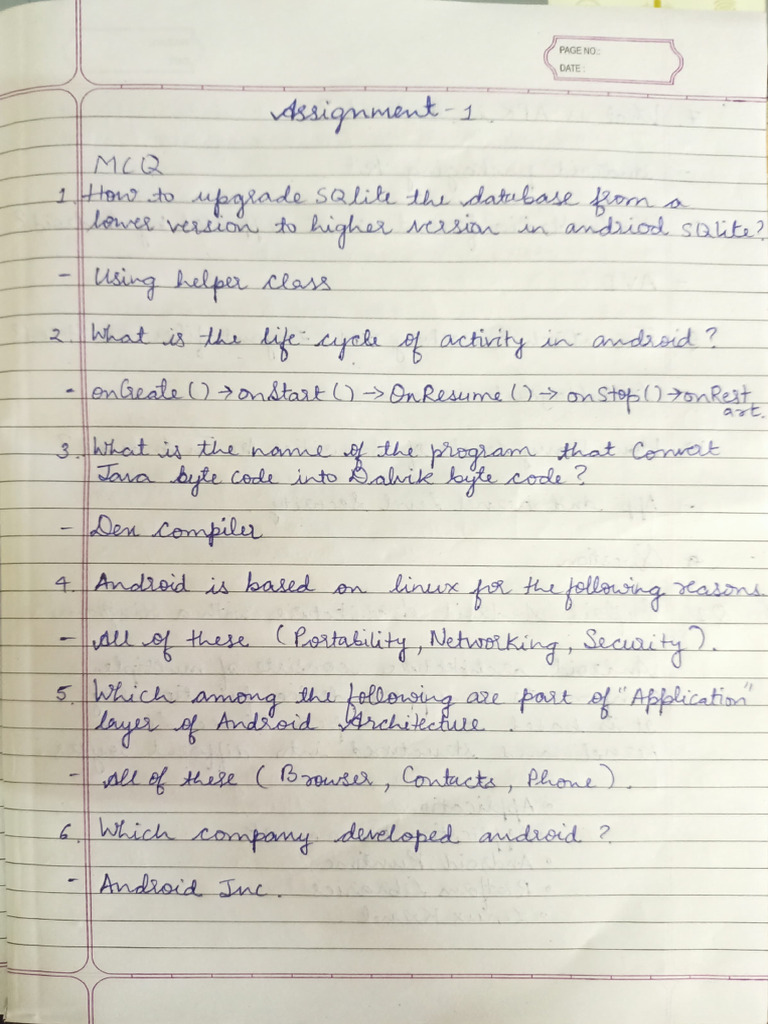 PAGE NO.:
DATE :
Assignment - 1.
MCQ
1. How to upgrade SQlite the database from a
lower version to higher version in andriod SQlite?
- Using helper class
2. What is the life cycle of activity in android ?
- onCreate () → onStart () → OnResume () → onStop () → onRest
art.
3. What is the name of the program that Convert
Java byte code into Dalvik byte code ?
- Dex compiler
4. Android is based on linux for the following reasons.
- All of these (Portability, Networking, Security).
5. Which among the following are part of "Application"
layer of Android Architecture .
- All of these ( Browser, Contacts, Phone ).
6. Which company developed android ?
- Android Inc.